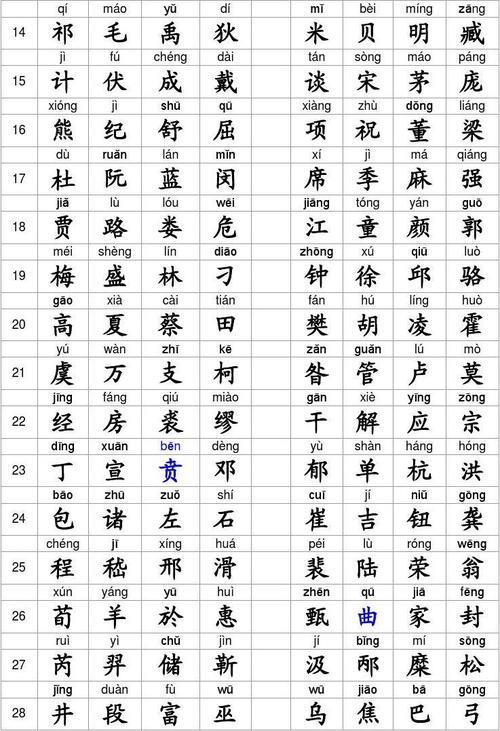 qí máo yǔ dí mǐ bèi míng zāng
14 祁 毛 禹 狄 米 贝 明 臧
jì fú chéng dài tán sòng máo páng
15 计 伏 成 戴 谈 宋 茅 庞
xióng jì shū qū xiàng zhù dǒng liáng
16 熊 纪 舒 屈 项 祝 董 梁
dù ruǎn lán mǐn xí jì má qiáng
17 杜 阮 蓝 闵 席 季 麻 强
jiǎ lù lóu wēi jiāng tóng yán guō
18 贾 路 娄 危 江 童 颜 郭
méi shèng lín diāo zhōng xú qiū luò
19 梅 盛 林 刁 钟 徐 邱 骆
gāo xià cài tián fán hú líng huò
20 高 夏 蔡 田 樊 胡 凌 霍
yú wàn zhī kē zǎn guǎn lú mò
21 虞 万 支 柯 昝 管 卢 莫
jīng fáng qiú miào gān xiè yīng zōng
22 经 房 裘 缪 干 解 应 宗
dīng xuān bēn dèng yù shàn háng hóng
23 丁 宣 贲 邓 郁 单 杭 洪
bāo zhū zuǒ shí cuī jí niǔ gōng
24 包 诸 左 石 崔 吉 钮 龚
chéng jī xíng huá péi lù róng wēng
25 程 嵇 邢 滑 裴 陆 荣 翁
xún yáng yū huì zhēn qū jiā fēng
26 荀 羊 於 惠 甄 曲 家 封
ruì yì chǔ jìn jí bǐng mí sōng
27 芮 羿 储 靳 汲 邴 糜 松
jǐng duàn fù wū wū jiāo bā gōng
28 井 段 富 巫 乌 焦 巴 弓